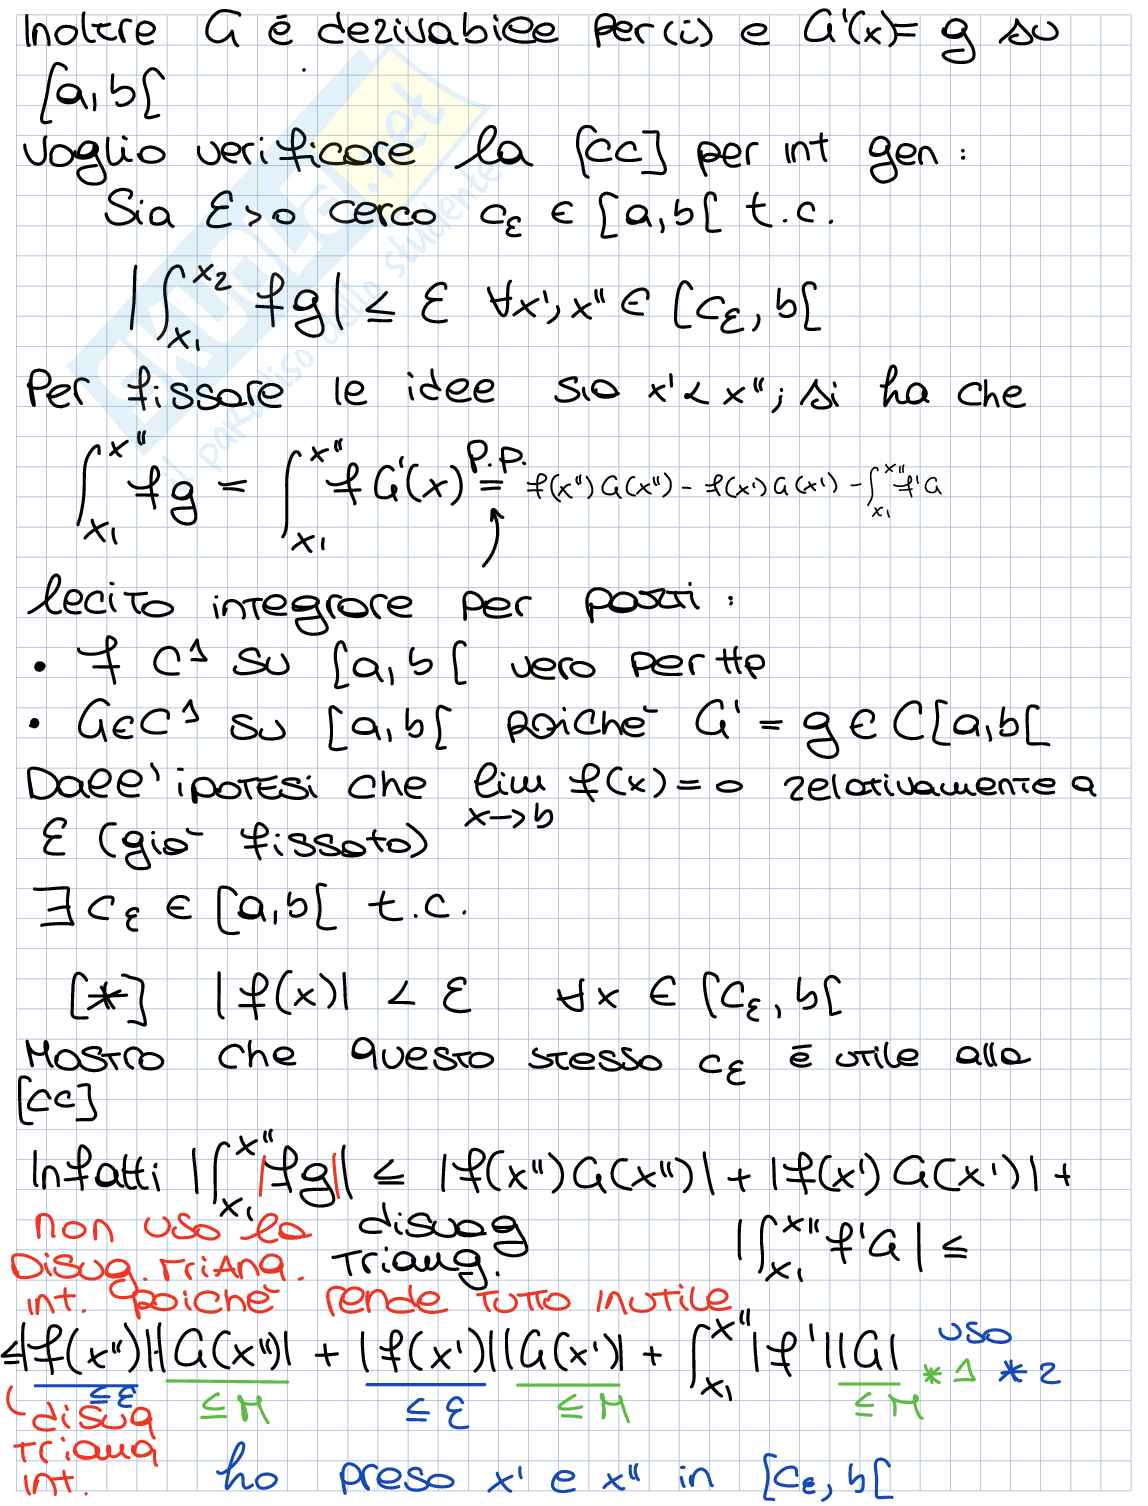 Inoltre G è derivabile per (i) e G'(x)= g su
[a,b[
Voglio verificare la [CC] per int gen :
Sia ε>0 cerco c_ε ∈ [a,b[ t.c.
|∫_{x_1}^{x_2} fg| ≤ ε ∀x', x'' ∈ [c_ε, b[
Per fissare le idee sia x' < x''; si ha che
∫_{x_1}^{x''} fg = ∫_{x_1}^{x''} f G'(x) =^{P.P.} f(x'')G(x'') - f(x')G(x') - ∫_{x_1}^{x''} f'G
lecito integrare per parti :
• f C^1 su [a,b[ vero per Hp
• G∈C^1 su [a,b[ poichè G' = g ∈ C[a,b[
Dall'ipotesi che lim_{x→b} f(x) = 0 relativamente a
ε (già fissato)
∃ c_ε ∈ [a,b[ t.c.
[*] |f(x)| < ε ∀x ∈ [c_ε, b[
Mostro che questo stesso c_ε è utile alla
[CC]
Infatti |∫_{x_1}^{x''} |fg|| ≤ |f(x'')G(x'')| + |f(x')G(x')| +
non uso la disuag
|∫_{x_1}^{x''} f'G| ≤
Disug. triang. triang.
int. poichè rende tutto inutile
≤|f(x'')||G(x'')| + |f(x')||G(x')| + ∫_{x_1}^{x''} |f'||G| uso
*1 *2
≤ε ≤M ≤ε ≤M ≤M
disug
triang
int. ho preso x' e x'' in [c_ε, b[
SKUOLA.net
il paradiso dello studente